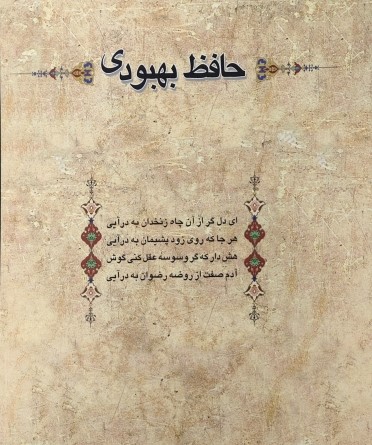 حافظ بهبودی
ای دل گر از آن چاه زنخدان به درآیی
هر جا که روی زود پشیمان به درآیی
هش دار که گر وسوسه عقل کنی گوش
آدم صفت از روضه رضوان به درآیی